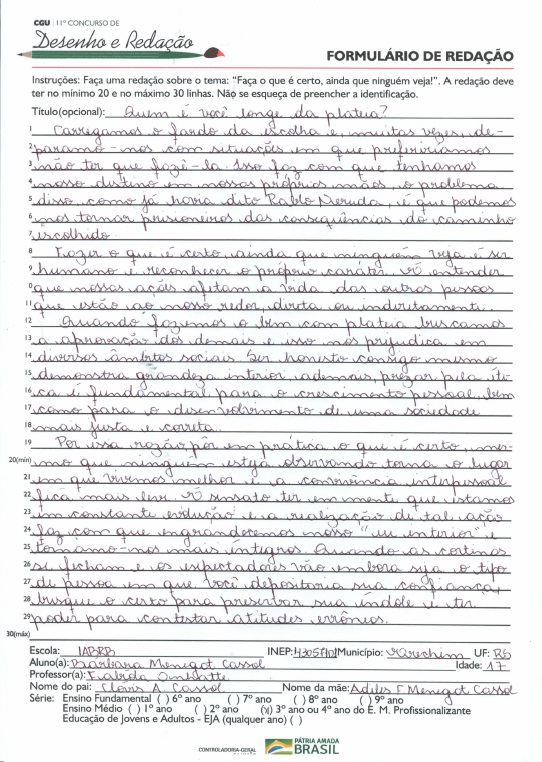 CGU | 11º CONCURSO DE
Desenho e Redação
FORMULÁRIO DE REDAÇÃO
Instruções: Faça uma redação sobre o tema: "Faça o que é certo, ainda que ninguém veja!". A redação deve
ter no mínimo 20 e no máximo 30 linhas. Não se esqueça de preencher a identificação.
Título(opcional): Quem é você longe da plateia?
1 Carregamos o fardo da escolha e, muitas vezes, de-
2 paramo-nos com situações em que preferiríamos
3 não ter que fazê-la. Isso faz com que tenhamos
4 nosso destino em nossas próprias mãos, o problema
5 disso, como já havia dito Pablo Neruda, é que podemos
6 nos tornar prisioneiros das consequências do caminho
7 escolhido.
8 Fazer o que é certo, ainda que ninguém veja é ser
9 humano e reconhecer o próprio caráter. É entender
0 que nossas ações afetam a vida das outras pessoas
11 que estão ao nosso redor, direta ou indiretamente.
12 Quando fazemos o bem com plateia buscamos
13 a aprovação dos demais e isso nos prejudica em
14 diversos âmbitos sociais. Ser honesto consigo mesmo
15 demonstra grandeza interior, ademais, prezar pela éti-
16 ca é fundamental para o crescimento pessoal, bem
17 como para o desenvolvimento de uma sociedade
18 mais justa e correta.
19 Por essa razão, pôr em prática o que é certo, mes-
20(mín) mo que ninguém esteja observando torna o lugar
21 em que vivemos melhor e a convivência interpessoal
22 fica mais leve. É sensato ter em mente que estamos
23 em constante evolução e a realização de tal ação
24 faz com que engrandecemos nosso "eu interior" e
25 tornamo-nos mais íntegros. Quando as cortinas
26 se fecham e os espectadores vão embora seja o tipo
27 de pessoa em que você depositaria sua confiança,
28 busque o certo para preservar sua índole e ter
29 poder para contestar atitudes errôneas.
30(máx)
Escola: IABRB INEP: Município: Erechim UF: RS
Aluno(a): Bárbara Menegot Cassol Idade: 17
Professor(a):
Nome do pai: Clovis A. Cassol Nome da mãe: Menegot Cassol
Série: Ensino Fundamental ( ) 6º ano ( ) 7º ano ( ) 8º ano ( ) 9º ano
Ensino Médio ( ) 1º ano ( ) 2º ano (x) 3º ano ou 4º ano do E. M. Profissionalizante
Educação de Jovens e Adultos - EJA (qualquer ano) ( )
CONTROLADORIA-GERAL
PÁTRIA AMADA
BRASIL